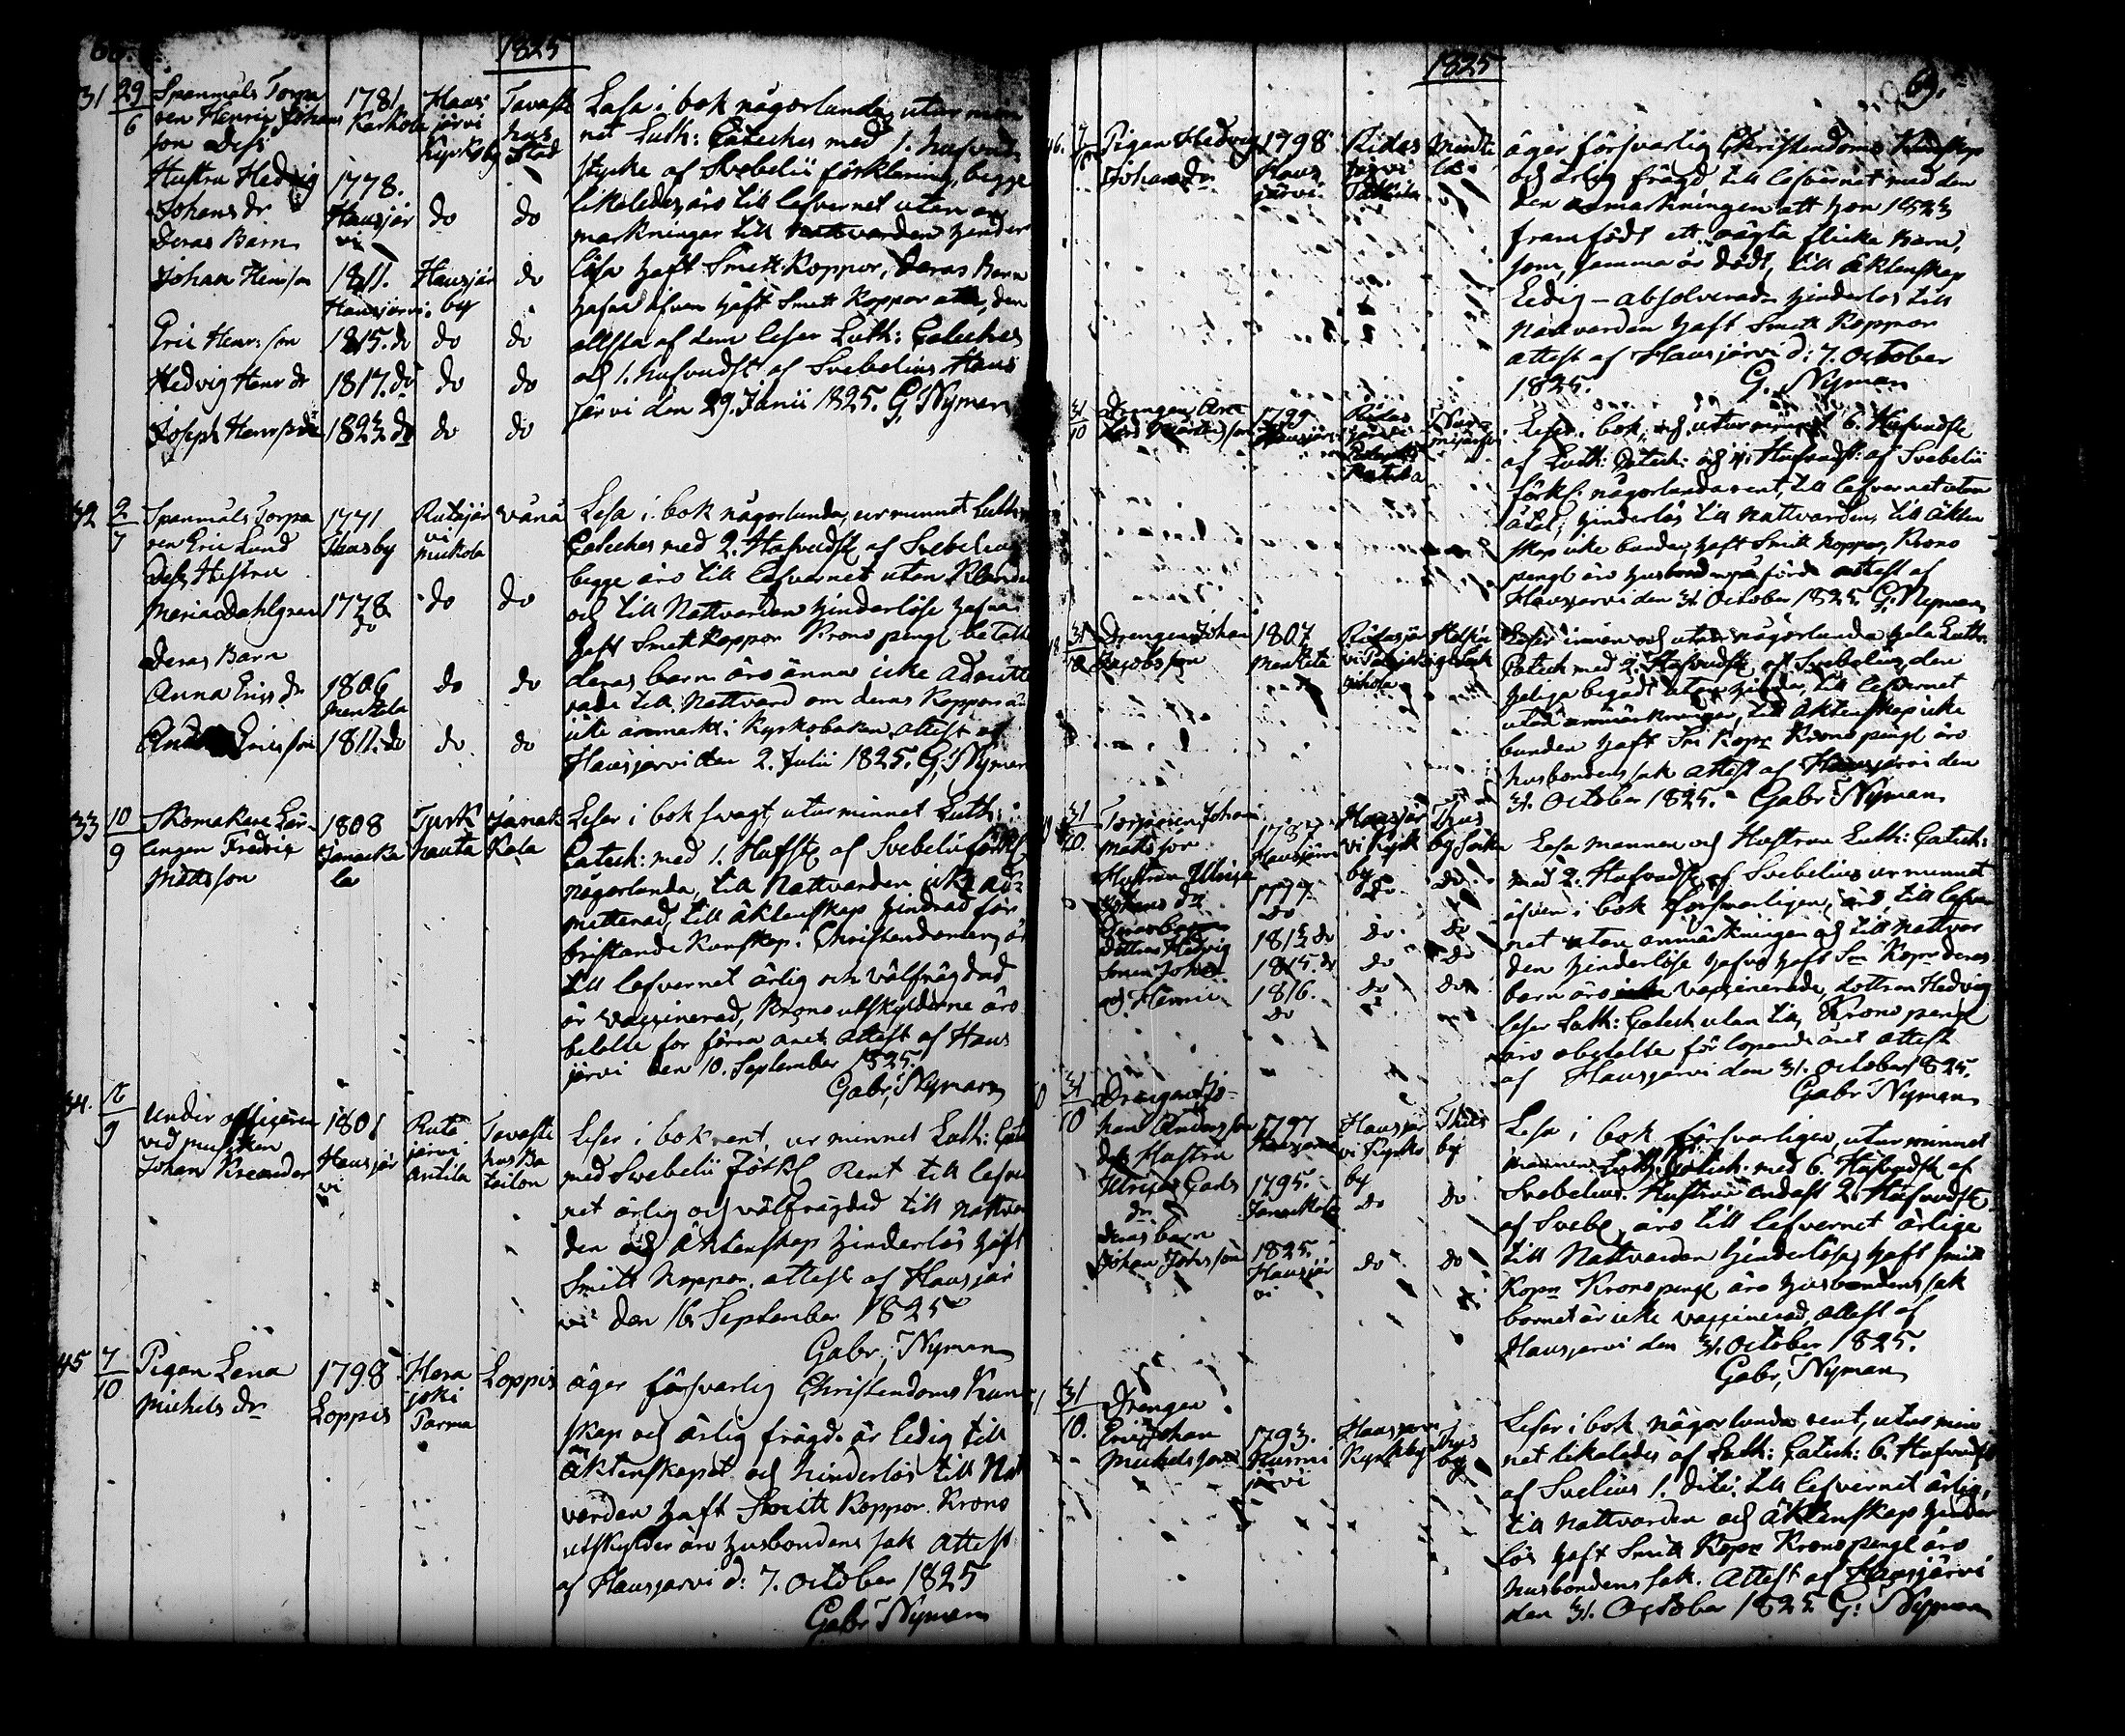 1825
31 29/6
Spanmåls Torpa
ren Henric Johans
son Dess
Hustru Hedvig
Johans dr
deras Barn
Johan Henr son
Eric Henr: son
Hedvig Henr dr
Joseph Henr son
1781
Karkola
1778.
Hausjär
vi
1811.
Hausjärvi
1815. do
1817. do
1823 do
Haus
järvi
Kyrkoby
do
Hausjär
by
do
do
do
Tavaste
hus
Stad
do
do
do
do
do
Läsa i bok någorlunda utur min
net Luth: Cateches med 1. hufvud
stycke af Svebelii förklaring, begge
likaledes, äro till lefvernet utan an
markningar till nattvarden hinder
lösa haft Smitt Koppor, deras Barn
hafva äfven haft Smitt Koppor, den
allsta af dem läser Luth: Cateches
och 1. hufvudst af Svebelius Haus
järvi den 29. Junii 1825. G, Nyman
32 2/7
Spanmåls Torpa
ren Eric Lund
Dess Hustru
Maria Dahlgren
Deras Barn
Anna Erics dr
Ericsson
1771
Hausby
1778
do
1806
1811. do
Rutajär
vi
Muckola
do
do
do
Vånå
do
do
do
Lesa i bok någorlunda, ur minnet Luth:
Cateches med 2. Hufvudst af Svebelius
begge äro till lefvernet utan Klander
och till Nattvarden hinderlöse hafva
haft Smitt Koppor Krono pengr betalt
deras barn äro ännu icke admitte
rade till Nattvard om deras Koppor är
icke anmärkt i Kyrkoboken, attest af
Hausjärvi den 2. Julii 1825. G, Nyman
33 10/9
Skomakare Lär-
lingen Fredric
Mattsson
1808
Janacka
la
Turk
hauta
Janak
Kala
Leser i bok svagt, utur minnet Luth:
Catech: med 1. Hufst af Svebelii förkl
någorlunda, till Nattvarden icke ad-
mitterad, till äktenskap hindrad för
bristande Kunskap i Christendomen, är
till lefvernet ärlig och välfrägdad
är vaccinerad, Krono utskylderne äro
betalte for förra året, attest af Haus
järvi den 10. September 1825.
Gabr, Nyman
34. 16/9
Under officeren
vid musiken
Johan Kreander
1801
Hausjär
vi
Ruta
järvi
Antila
Tavaste
hus Ba
tailon
Leser i bok rent, ur minnet Luth: Cate
med Svebelii Förkl Rent till lefver
net ärlig och välfrägdad till nattvar
den och äktenskap hinderlös haft
Smitt Koppor. attest af Hausjär
vi den 16 September 1825
Gabr, Nyman
45 7/10
Pigan Lena
Michels dr
1798
Loppis
Hera
joki
Parma
Loppis
äger försvarlig Christendoms Kun
skap och ärlig frägd. är ledig till
äktenskapet och hinderlös till Nat
varden haft Smitt Koppor. Krono
utskylder äro husbondens sak Attest
af Hausjarvi d: 7. October 1825
Gabr Nyman
1825
69.
46. 7/10
Pigan Hedvig
Johans dr
1798
Haus
järvi
Ridas
järvi
äger försvarlig Christendoms Kunskap
och ärlig frägd, till lefvernet med den
den anmarkningen att hon 1823
framfödt ett oägta flicke Barn,
som samma år dödt, till äktenskap
Ledig - absolverad, hinderlös till
Nattvarden haft Smitt Koppor
attest af Hausjärvi d: 7. October
1825.
G. Nyman
31/10
Drengen
1799
Hausjär
Ridas
järvi
Leser i bok och utur minnet 6. Hufvudst
af Luth: Catech: och Hufvudst: af Svebelii
förkl. någorlunda rent, till lefvernet utan
åtal, hinderlös till Nattvarden, till äkten
skap icke bunden, haft Smitt koppor, Krono
pengr äro husbond attest af
Hausjärvi den 31. October 1825 G. Nyman
31/10
Drengen Johan
Jacobsson
1807
Ridasjär
vi
Leser innan och utan någorlunda hela Luth:
Catech med 2. Hufvudst af Svebelius den
helga begådt utan hinder, till lefvernet
utan anmärkningar, till äktenskap icke
bunden haft Sm Kopr Krono pengr äro
husbondens sak attest af Hausjärvi den
31. October 1825.
Gabr Nyman
31/10
Torparen Johan
Mattsson
Hustrun Ulrica
Johans dr
Dottren Hedvig
Sonen Johan
och Henric
1787
Hausjärvi
1777
do
1812 do
1815. do
1816.
do
Hausjär
vi Kyrk
by
do
do
do
do
do
do
do
do
Lesa mannen och Hustrun Luth: Catech:
med 2. Hufvudst af Svebelius ur minnet
äfven i bok försvarligen, äro till lefver
net utan anmärkningar och till nattvar
den hinderlöse hafva haft Sm Kopr deras
barn äro vaccinerade, dottren Hedvig
leser Luth: Catech utan till, Krono pengr
äro abetalte för lopande året attest
af Hausjarvi den 31. October 1825.
Gabr Nyman
31/10
Drengen Jo-
han Andersson
des Hustru
Ulrica Gads
dr
deras barn
Johan Johansson
1797
Hausjärvi
1795.
Janackala
1825.
Hausjär
vi
Hausjär
vi Kyrko
by
do
do
by
do
do
Lesa i bok försvarligen, utur minnet
mannen Luth: Catech: med 6. Hufvudst af
Svebelius. Hustrun endast 2. Hufvudst
af Svebe, äro till lefvernet ärlige
till Nattvarden hinderlöse, haft Smitt
Kopr Krono pengr äro husbondens sak
barnet är icke vaccinerad, attest af
Hausjarvi den 31. October 1825.
Gabr, Nyman
31/10.
Drengen
Johan
Michelsson
1793.
Nurmi
järvi
Hausjarvi
Kyrkby
by
Leser i bok någorlunda rent, utur min
net likaledes af Luth: Catech: 6. Hufvudst
af Svelius 1. dito. till lefvernet ärlig,
till Nattvarden och äktenskap hinder
lös haft Smitt Kopr Krono pengr äro
husbondens sak. Attest af Hausjärvi
den 31. October 1825 G: Nyman